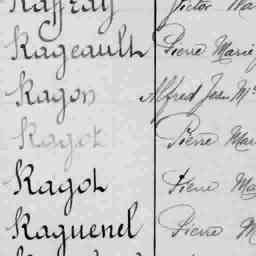 Raffray Victor
Rageault Pierre Marie
Ragon Alfred Jean M
Ragot Pierre Mar
Ragot Pierre Ma
Raguenel Pierre M